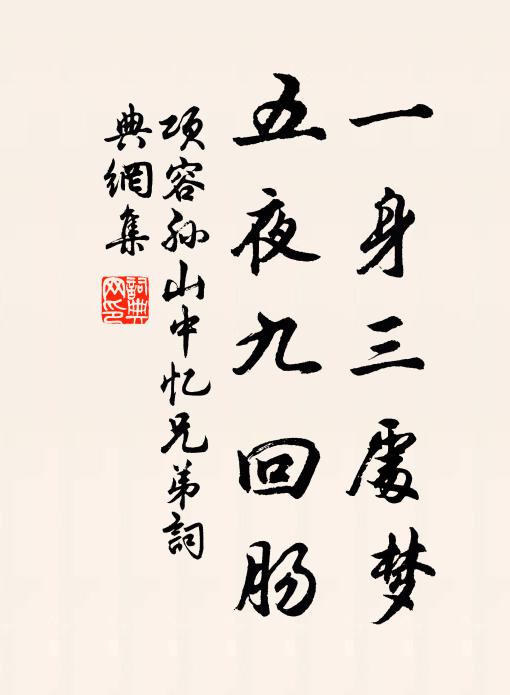 一身三處梦
五夜九回肠
项容孙山中忆兄弟詞
典網集
詞典
网印